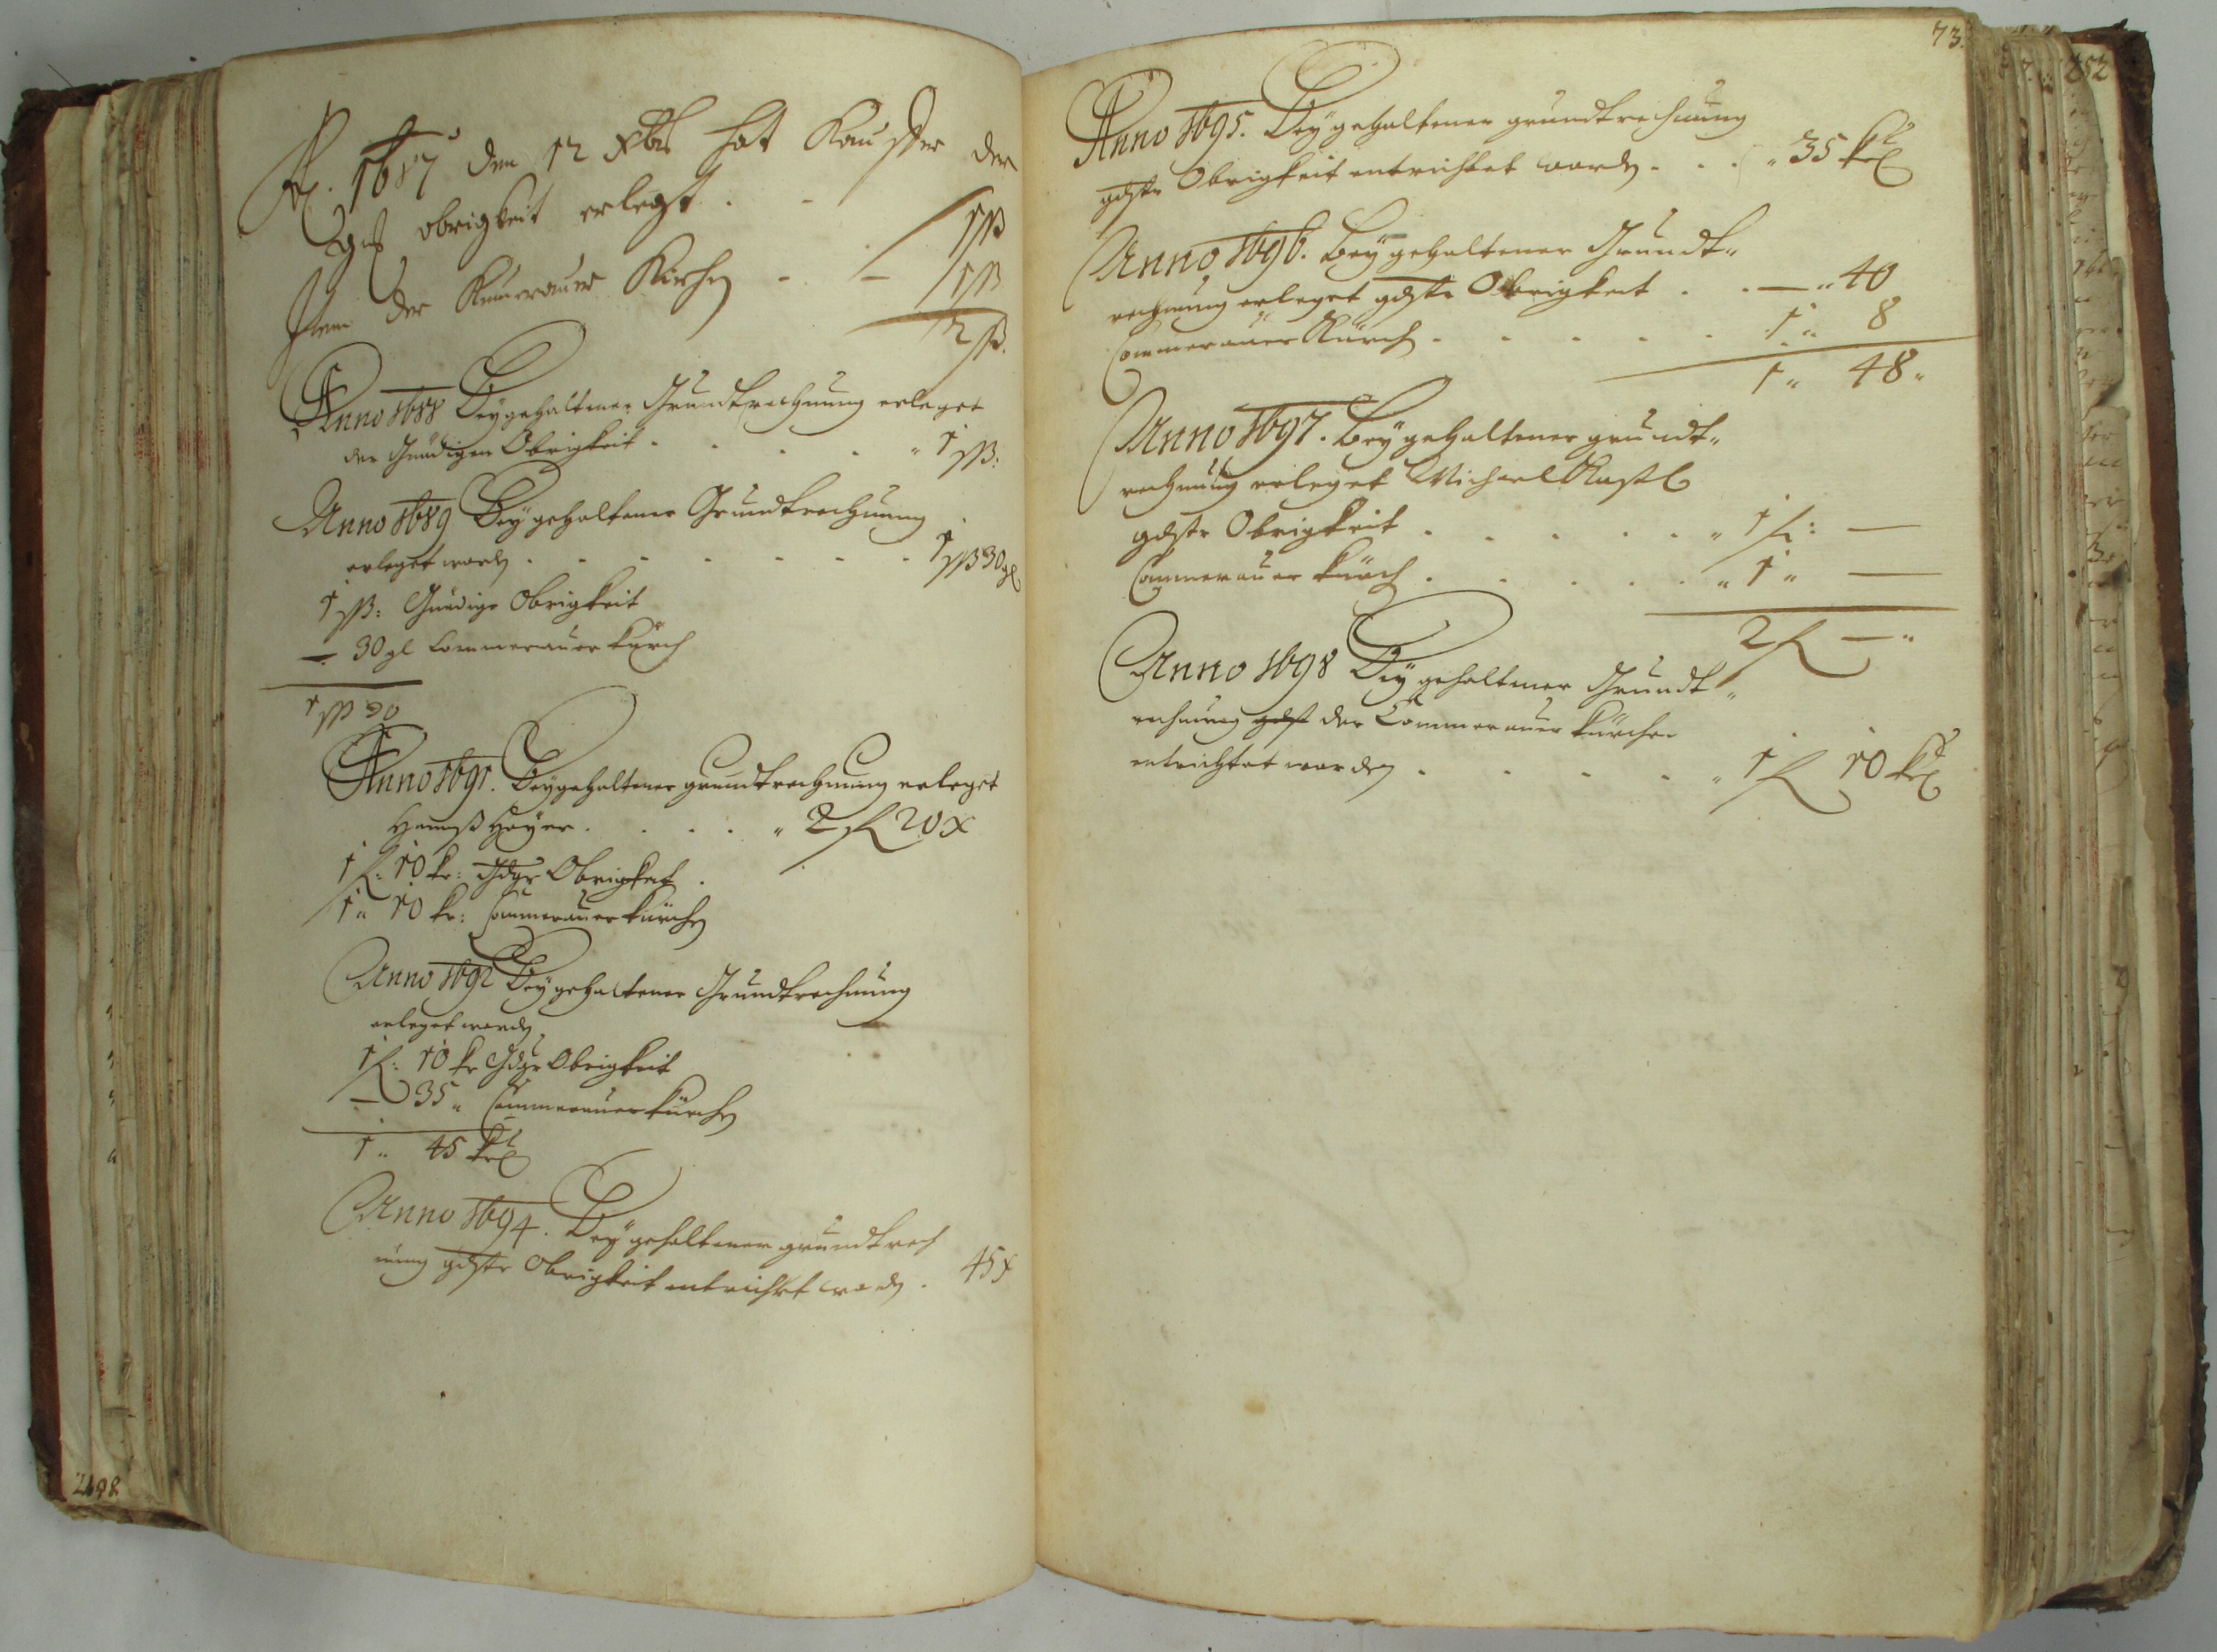 A. 1687 den 12 Xbris hat Kauffer der
gnd obrigkeit erlegt . . 1 ßß
Item der Kumerauer Kirchen . — 1 ßß
2 ßß.
Anno 1688 Bey gehaltener Grundtrechnung erleget
der Gnädigen Obrigkeit . . . . " 1 ßß:
Anno 1689 Bey gehaltener Grundtrechnung
erleget worden . . . . . . . 1 ßß 30 gl
1 ßß: Gnädige Obrigkeit
— 30 gl Commerauer Kürch
1 ßß 30
Anno 1691. Bey gehaltener grundtrechnung erleget
Hannß Hoyer . . . . " 2 fl 20 x
1 fl: 10 kr: Gdgr Obrigkeit .
1 " 10 kr: Commerauer Kürchen
Anno 1692 Bey gehaltener Grundtrechnung
erleget worden
1 fl: 10 kr Gdgr Obrigkeit
— 35 " Commerauer Kürchen
1 " 45 kr
Anno 1694. Bey gehaltener grundtrech
nung gdgste Obrigkeit entricht worden . 45 x
73.
Anno 1695. Bey gehaltener grundtrechnung
gdste Obrigkeit entrichtet worden . . . " 35 kr
Anno 1696. Bey gehaltener Grundt"
rechnung erleget gdste Obrigkeit . . — " 40
Commerauer Kürch . . . . . 1 " 8
1 " 48 "
Anno 1697. Bey gehaltener grundt"
rechnung erleget Michael Kastl
gdste Obrigkeit . . . . . " 1 fl: —
Commerauer Kürch . . . . . " 1 " —
2 fl — "
Anno 1698 Bey gehaltener Grundt"
rechnung der Commerauer Kürchen
entrichtet worden . . . . . " 1 fl 10 kr
252